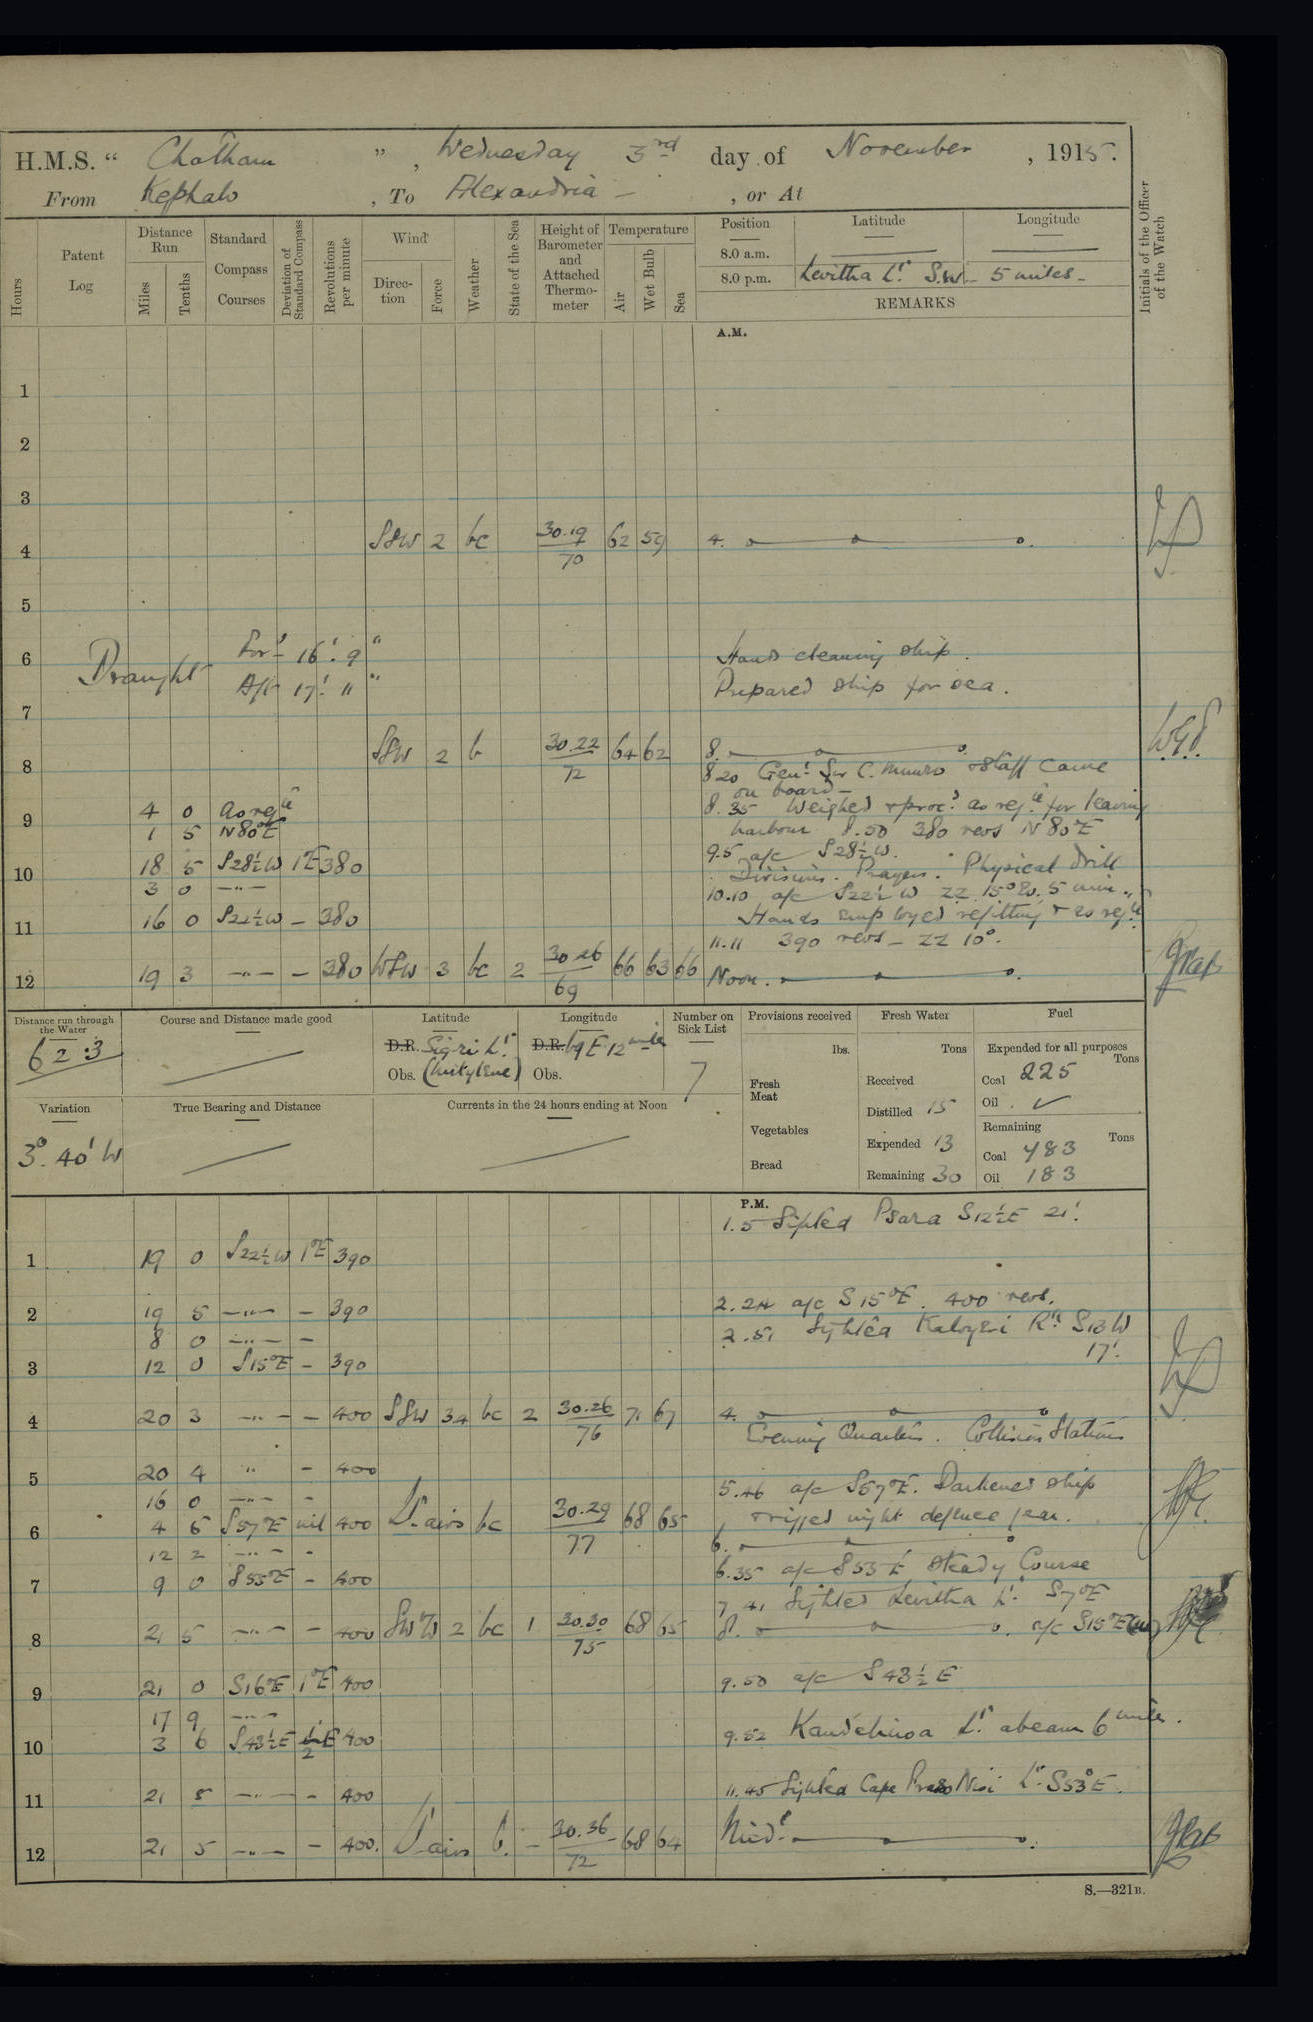 H.M.S. " Chatham " , Wednesday 3rd day of November , 1915.
From Kephalo , To Alexandria — , or At
Hours
Patent Log
Distance Run
Miles
Tenths
Standard Compass Courses
Deviation of Standard Compass
Revolutions per minute
Wind
Direction
Force
Weather
State of the Sea
Height of Barometer and Attached Thermometer
Temperature
Air
Wet Bulb
Sea
Position Latitude Longitude
8.0 a.m.
8.0 p.m. Levitha Lt. S.W. 5 miles
REMARKS
Initials of the Officer of the Watch
A.M.
1
2
3
4 SSW 2 bc 30.19/70 62 59 4.
5
Draught Ford. 16'. 9" Aft 17'. 11"
6 Hands cleaning ship.
Prepared ship for sea.
7
8 SSW 2 b 30.22/72 64 62 8.
8.20 Genl. Sir C. Munro & Staff came
on board
8.35 Weighed & procd. as reqte for leaving
9 4 0 as reqte
1 5 N80°E harbour 8.50 380 revs N80°E
9.5 a/c S28½W.
10 18 5 S28½W 1°E 380 Divisions. Prayers. Physical drill
3 0 —"— 10.10 a/c S22½W ZZ 15° ev. 5 min.
11 16 0 S22½W — 380 Hands employed refitting & as reqte
11.11 390 revs — ZZ 10°.
12 19 3 —"— — 380 WSW 3 bc 2 30.26/69 66 63 66 Noon.
Distance run through the Water 62.3
Course and Distance made good
Latitude D.R. Sigri Lt. Obs. (Mitylene)
Longitude D.R. 69 E 12 miles Obs.
Number on Sick List 7
Provisions received lbs.
Fresh Meat
Vegetables
Bread
Fresh Water Tons
Received
Distilled 15
Expended 13
Remaining 30
Fuel
Expended for all purposes Tons
Coal 225
Oil ✓
Remaining Tons
Coal 483
Oil 183
Variation 3°. 40' W
True Bearing and Distance
Currents in the 24 hours ending at Noon
P.M.
1.5 Sighted Psara S12½E 21'.
1 19 0 S22½W 1°E 390
2 19 5 —"— — 390 2.24 a/c S15°E. 400 revs.
8 0 —"— — 2.51 Sighted Kaloyeri Rk. S13W
3 12 0 S15°E — 390 17'.
4 20 3 —"— — 400 SSW 3.4 bc 2 30.26/76 71 67 4.
Evening Quarters. Collision Stations
5 20 4 " — 400
16 0 —"— — 5.46 a/c S57°E. Darkened ship
6 4 5 S57°E nil 400 Lt. airs bc 30.29/77 68 65 & rigged night defence gear.
12 2 —"— — 6.
7 9 0 S53°E — 400 6.35 a/c S53°E Steady Course
7.41 Sighted Levitha Lt. S7°E
8 21 5 —"— — 400 SW'W 2 bc 1 30.30/75 68 65 8. a/c S15°E
9 21 0 S16°E 1°E 400 9.50 a/c S43½E
17 9 —"—
10 3 6 S43½E ½E 400 9.52 Kandeliusa Lt. abeam 6 miles.
11 21 5 —"— — 400 11.45 Sighted Cape Praso Nisi Lt. S53°E.
12 21 5 —"— — 400. Lt. airs b. — 30.36/72 68 64 Midt.
S.—321B.